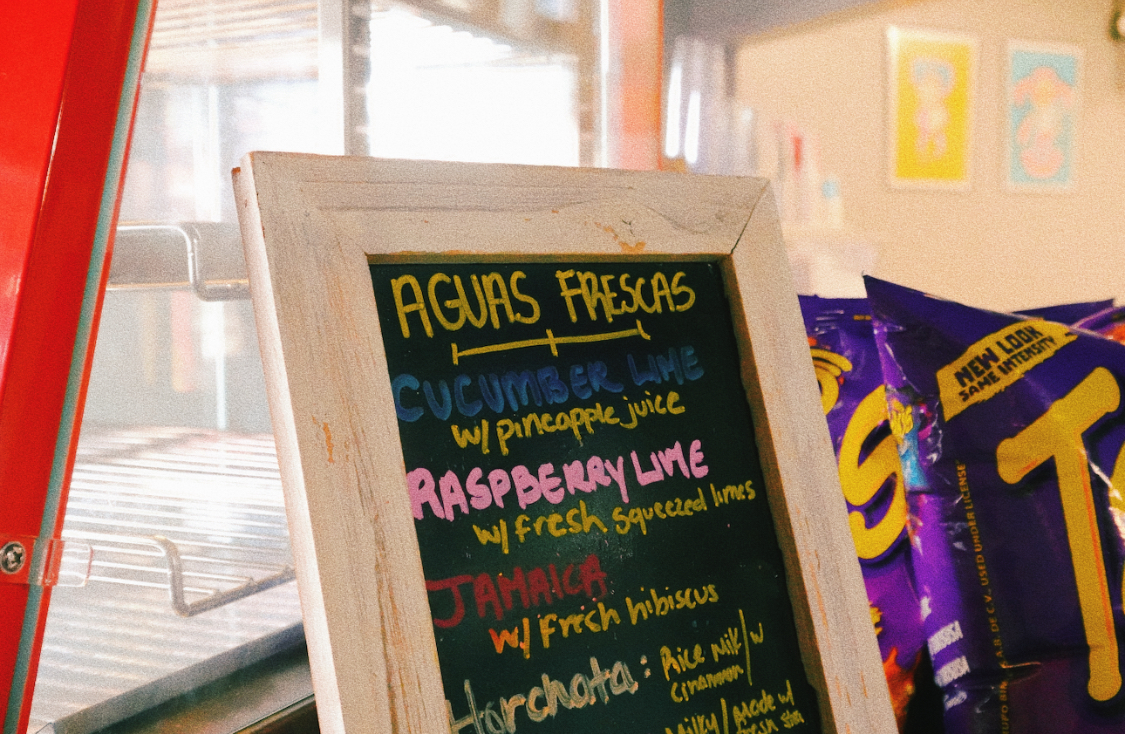 AGUAS FRESCAS
CUCUMBER LIME
w/ pineapple juice
RASPBERRY LIME
w/ fresh squeezed limes
JAMAICA
w/ fresh hibiscus
Horchata: Rice milk/w
cinnamon/
Milky/made w/
fresh
NEW LOOK
SAME INTENSITY
T
S
A.B. DE C.V., USED UNDER LICENSE